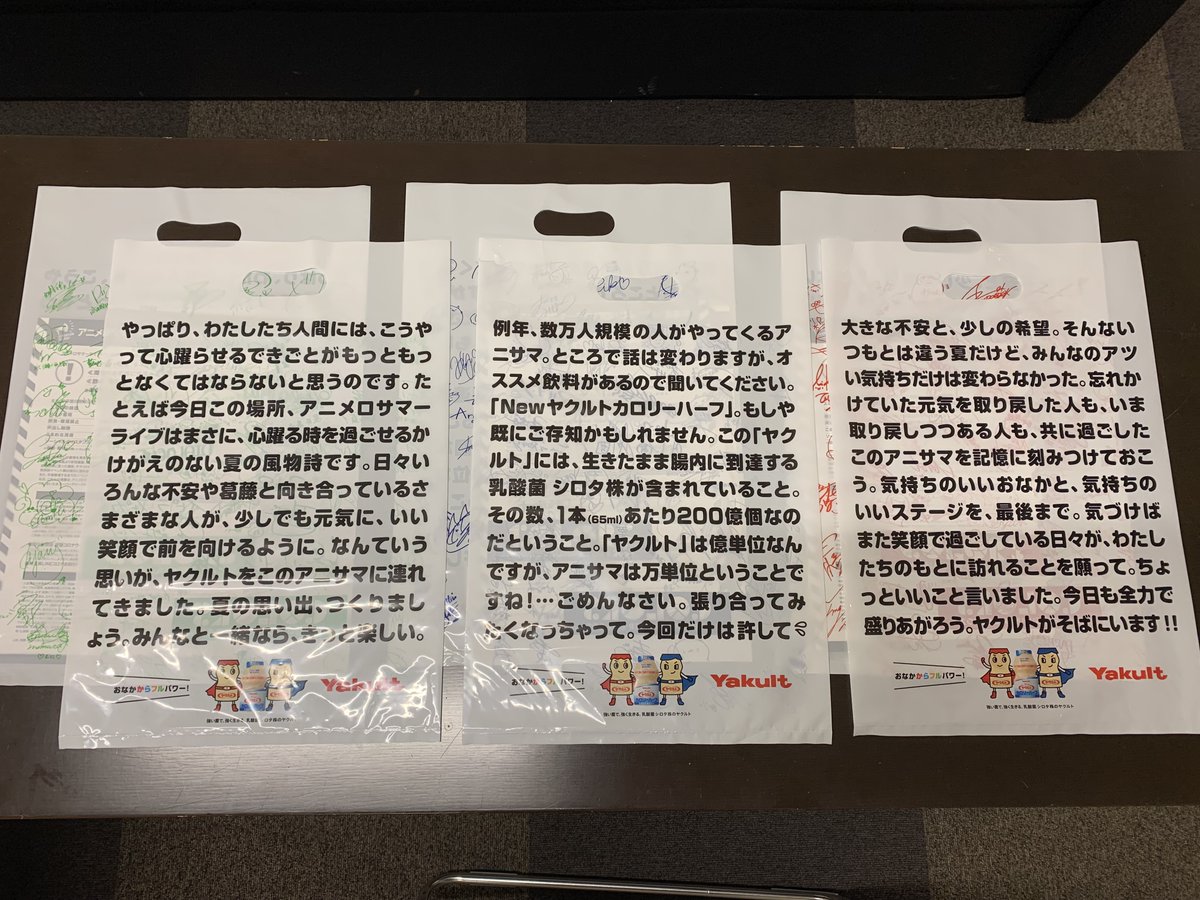 やっぱり、わたしたち人間には、こうや
って心躍らせるできごとがもっともっ
となくてはならないと思うのです。た
とえば今日この場所、アニメロサマー
ライブはまさに、心躍る時を過ごせるか
けがえのない夏の風物詩です。日々い
ろんな不安や葛藤と向き合っているさ
まざまな人が、少しでも元気に、いい
笑顔で前を向けるように。なんていう
思いが、ヤクルトをこのアニサマに連れ
てきました。夏の思い出、つくりまし
ょう。みんなと一緒なら、きっと楽しい。
おなかからフルパワー!
Yakult
強い菌で、強く生きる。乳酸菌 シロタ株のヤクルト
例年、数万人規模の人がやってくるア
ニサマ。ところで話は変わりますが、オ
ススメ飲料があるので聞いてください。
「Newヤクルトカロリーハーフ」。もしや
既にご存知かもしれません。この「ヤク
ルト」には、生きたまま腸内に到達する
乳酸菌 シロタ株が含まれていること。
その数、1本(65ml)あたり200億個なの
だということ。「ヤクルト」は億単位なん
ですが、アニサマは万単位ということで
すね!…ごめんなさい。張り合ってみ
たくなっちゃって。今回だけは許して
おなかからフルパワー!
Yakult
強い菌で、強く生きる。乳酸菌 シロタ株のヤクルト
大きな不安と、少しの希望。そんない
つもとは違う夏だけど、みんなのアツ
い気持ちだけは変わらなかった。忘れか
けていた元気を取り戻した人も、いま
取り戻しつつある人も、共に過ごした
このアニサマを記憶に刻みつけておこ
う。気持ちのいいおなかと、気持ちの
いいステージを、最後まで。気づけば
また笑顔で過ごしている日々が、わたし
たちのもとに訪れることを願って。ちょ
っといいこと言いました。今日も全力で
盛りあがろう。ヤクルトがそばにいます!!
おなかからフルパワー!
Yakult
強い菌で、強く生きる。乳酸菌 シロタ株のヤクルト